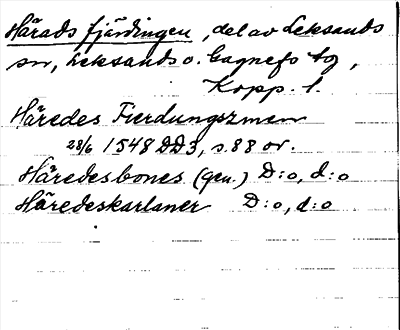 Härads fjärdingen, del av Leksands
sn, Leksands o. Gagnefs tg,
Kopp. l.
Häredes Fierdungszmen
28/6 1548 DD3, s. 88 or.
Häredesbones (gen.) D:o, d:o
Häredeskarlaner D:o, d:o